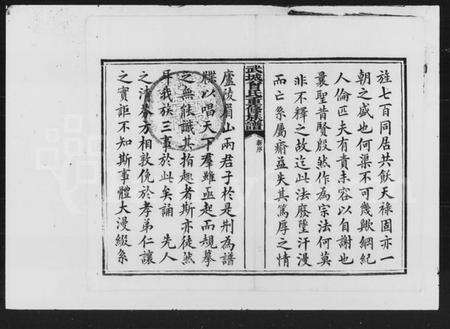 旌七百同居共飲天祿固亦一
朝之盛也何渠不可幾歟綱紀
人倫匹夫有責未容以自謝也
曩聖昔賢殷然作為宗法何莫
非不釋之故迄此法廢墜汗漫
而亡系屬瘠益失其篤厚之情
武城曾氏重修族譜
舊序
廬陵眉山兩君子於是刱為譜
牒以唱天下羣雖亟起而規摹
之無能識其指趣者斯亦徒然
耳我族三事於此矣誦先人
之清芬方相敦俛於孝弟仁讓
之實詎不知斯事體大漫綴系